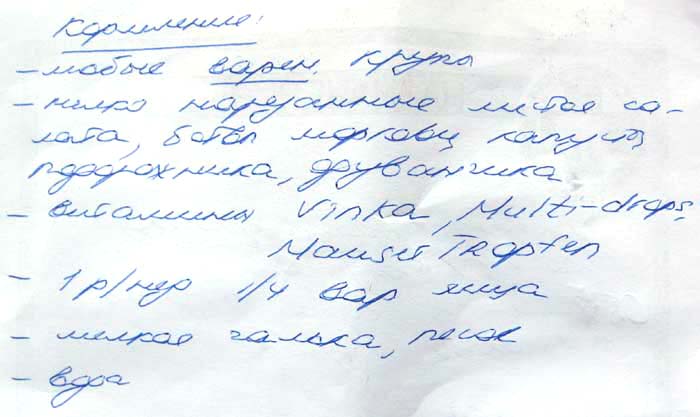 Кормление:
– любые варен. крупы
– мелко нарезанные листое са-
лата, ботвы моркови, капусты,
подорожника, одуванчика
– витамины Vinka, Multi-drops,
Mauser Tropfen
– 1 р/нед 1/4 вар яйца
– мелкая галька, песок
– вода